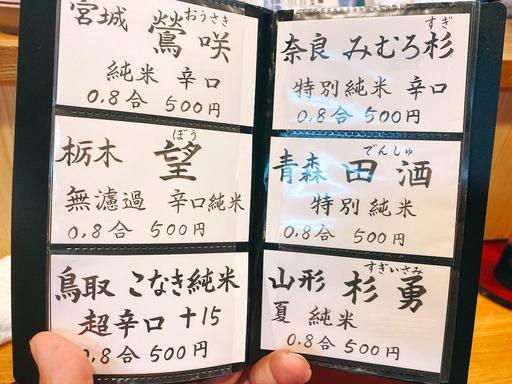 宮城 鶯咲
おうさき
純米 辛口
0.8合 500円
栃木 望
ぼう
無濾過 辛口純米
0.8合 500円
鳥取 こなき純米
超辛口 +15
0.8合 500円
奈良 みむろ杉
すぎ
特別純米 辛口
0.8合 500円
青森 田酒
でんしゅ
特別純米
0.8合 500円
山形 杉勇
すぎいさみ
夏 純米
0.8合 500円